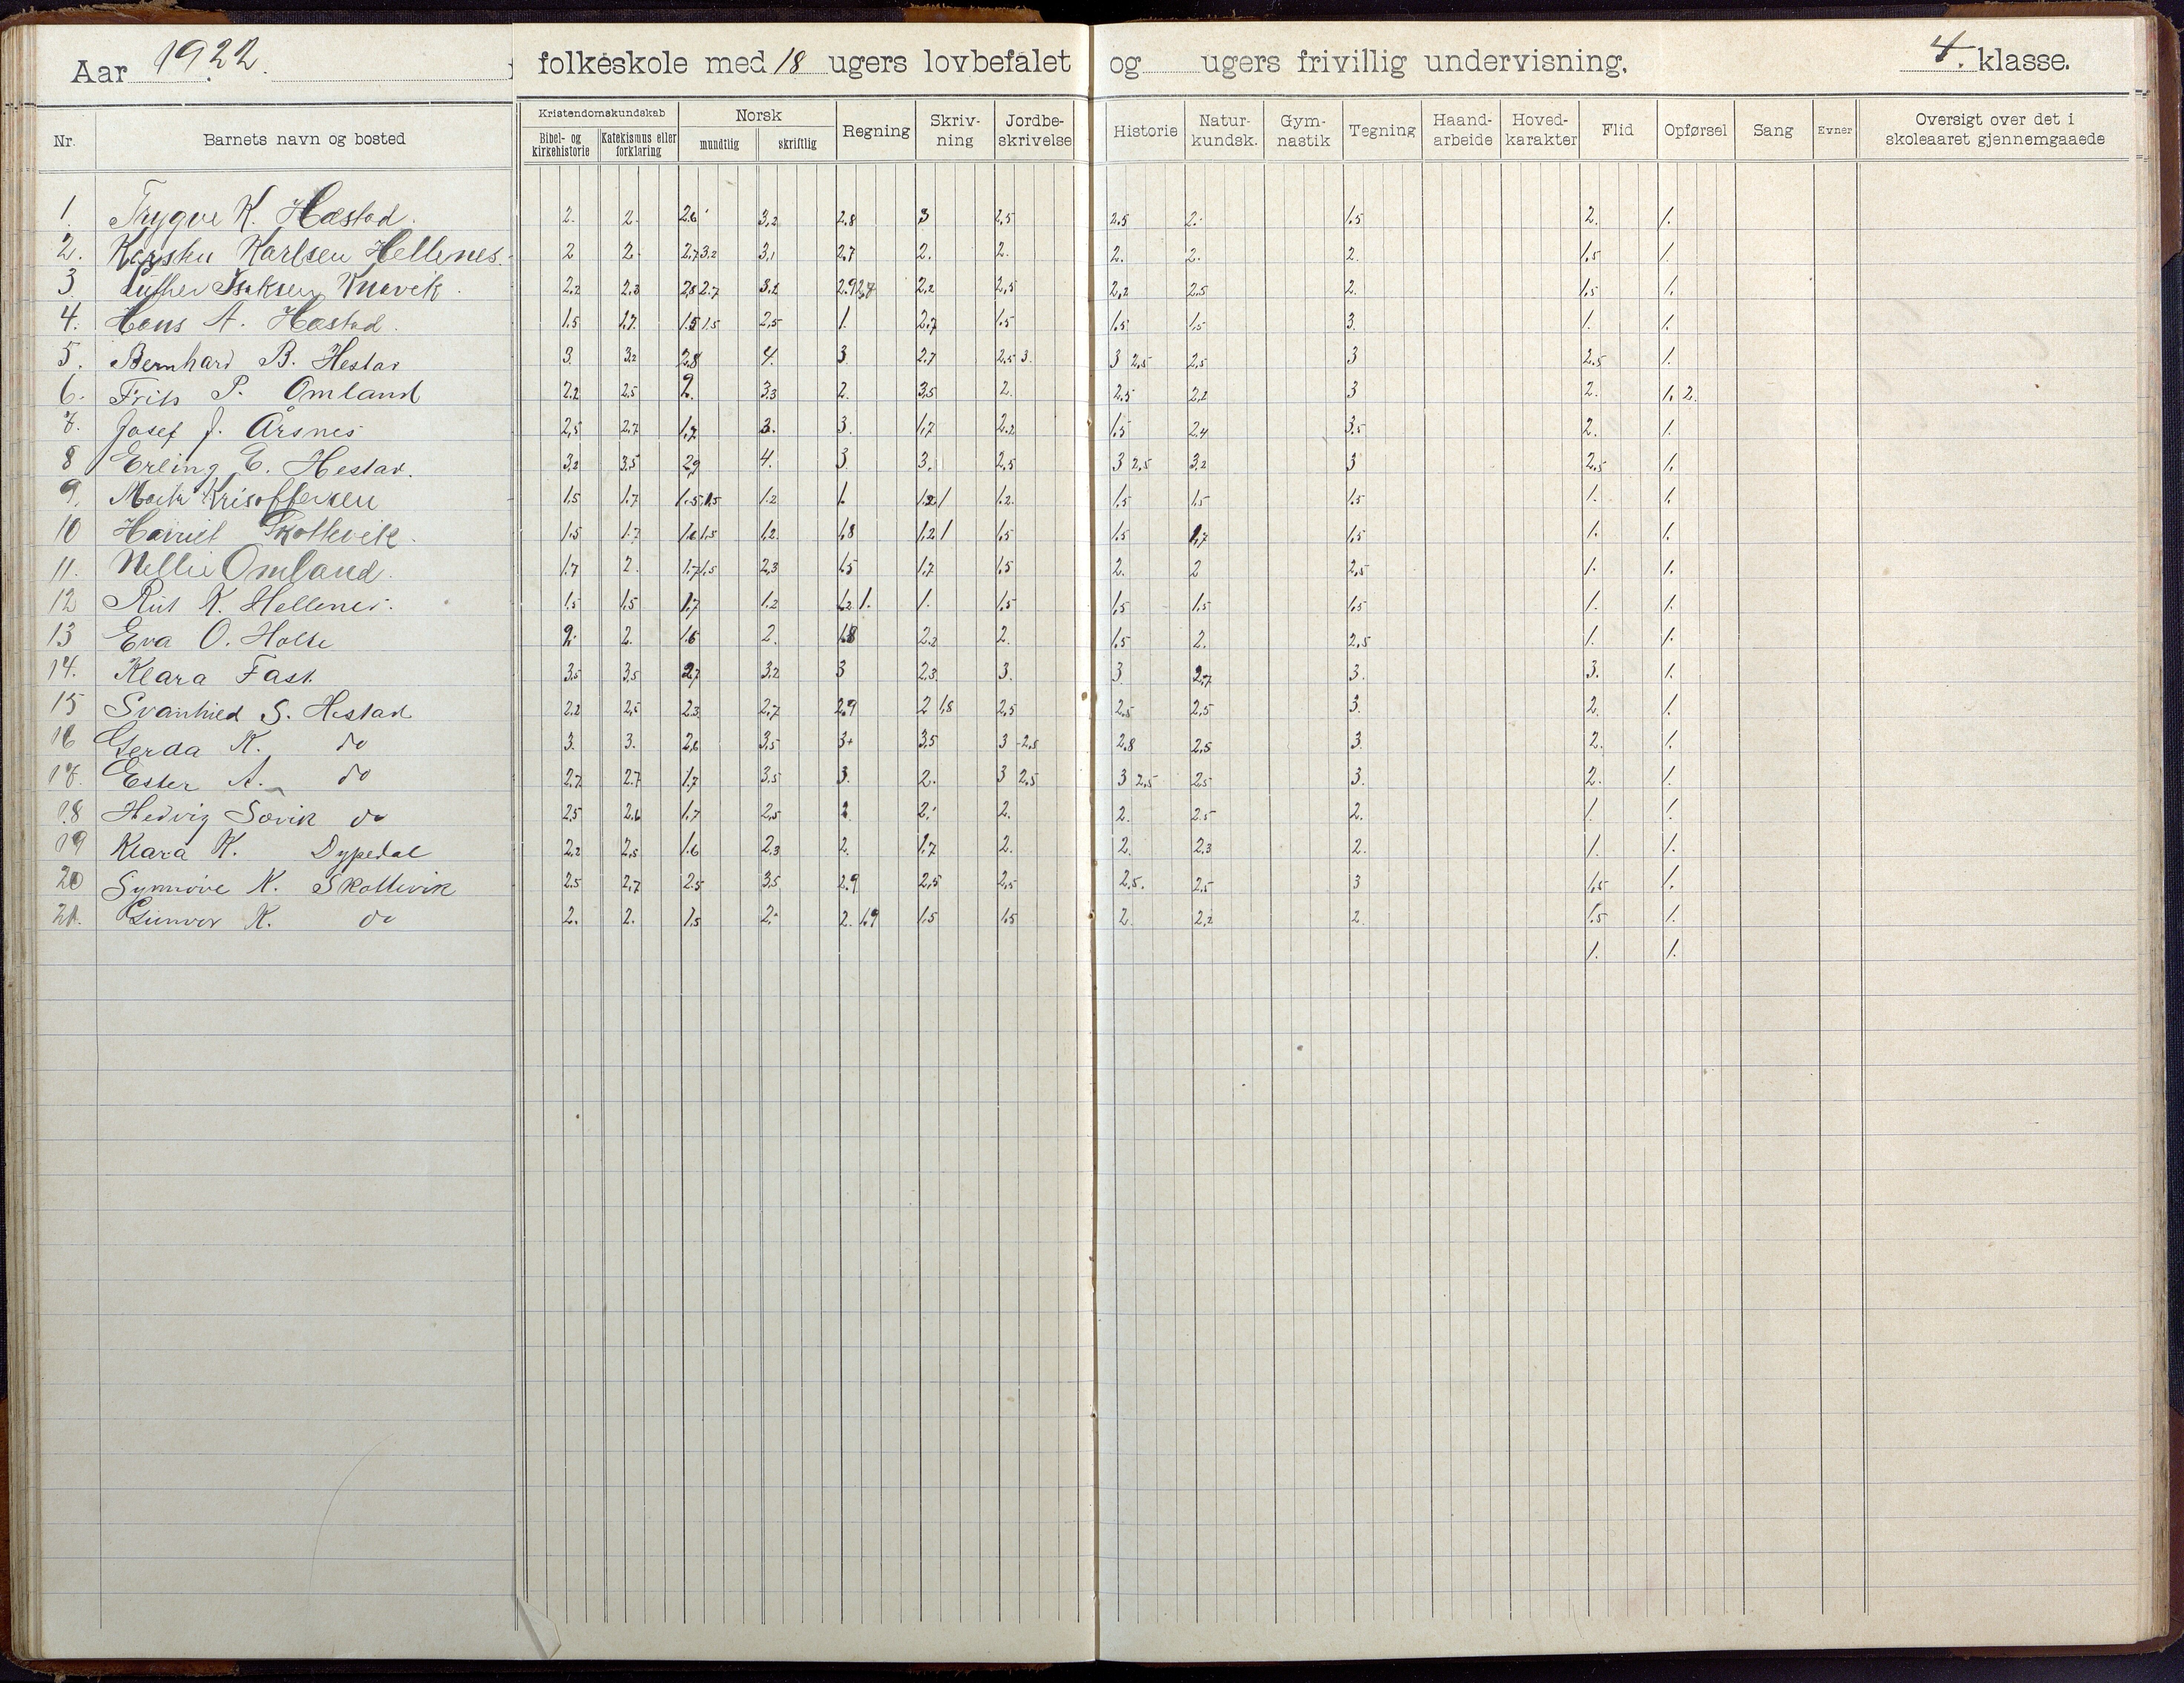 Aar 1922. folkeskole med 18 ugers lovbefalet og ugers frivillig undervisning, 4. klasse.
Nr. Barnets navn og bosted Kristendomskundskab Bibel- og kirkehistorie Katekismus eller forklaring Norsk mundtlig skriftlig Regning Skriv-ning Jordbe-skrivelse Historie Natur-kundsk. Gym-nastik Tegning Haand-arbeide Hoved-karakter Flid Opførsel Sang Evner Oversigt over det i skoleaaret gjennemgaaede
1. Trygve K. Hæstad. 2. 2. 2.6 3,2 2.8 3 2,5 2.5 2. 1.5 2. 1.
2. Karlsen Hellenes. 2 2. 2.7 3.2 3,1 2.7 2. 2. 2. 2. 2. 1.5 1.
3 Isaksen 2.2 2.3 2,8 2.7 3.2 2.9 2,7 2.2 2,5 2,2 2.5 2. 1.5 1.
4. Hans A. Hæstad. 1.5 1,7. 1.5 1.5 2,5 1. 2.7 1.5 1.5 1.5 3. 1. 1.
5. Bernhard B. Hestad 3. 3.2 2.8 4. 3. 2.7 2.5 3. 3 2.5 2.5 3 2.5 1.
6. Frits P. Omland 2.2 2.5 2. 3.3 2. 3.5 2. 2.5 2,2 3 2. 1. 2.
7. Josef J. Årsnes 2,5 2.7 1.7 3. 3. 1.7 2.2 1.5 2.4 3.5 2. 1.
8 Erling E. Hestad. 3.2 3.5 2.9 4. 3. 3. 2,5 3 2.5 3.2 3 2.5 1.
9. 1.5 1.7 1.5 1.5 1.2 1. 1.2 1 1.2. 1.5 1.5 1.5 1. 1.
10 Skottevik. 1.5 1.7 1.6 1.5 1,2. 1.8 1.2 1 1.5 1.5 1.7 1.5 1. 1.
11. Nellie Omland. 1.7 2. 1.7 1.5 2,3 1.5 1.7 1.5 2. 2 2,5 1. 1.
12 Rut K. Hellenes. 1.5 1.5 1.7 1.2 1.2 1. 1. 1.5 1.5 1.5 1.5 1. 1.
13 Eva O. Holte 2. 2. 1.6 2. 1.8 2.2 2. 1.5 2. 2,5 1. 1.
14. Klara Fast. 3.5 3,5 2.7 3.2 3 2.3 3. 3 2.7 3. 3. 1.
15 Svanhild S. Hestad 2.2 2,5 2.3 2.7 2.9 2 1.8 2.5 2.5 2,5 3. 2. 1.
16 Gerda K. do 3. 3. 2.6 3.5 3+ 3.5 3 2.5 2.8 2.5 3. 2. 1.
17. Ester A. do 2.7 2.7 1.7 3.5 3. 2. 3 2.5 3 2.5 2.5 3. 2. 1.
18 Hedvig Søvik do 2.5 2.6 1.7 2,5 2. 2. 2. 2. 2.5 2. 1. 1.
19 Klara K. Dypedal 2.2 2.5 1.6 2.3 2. 1.7 2. 2. 2.3 2. 1. 1.
20 Synnøve K. Skottevik 2.5 2,7 2.5 3.5 2.9 2,5 2.5 2.5. 2.5 3 1.5 1.
21. Gunvor K. do 2. 2. 1.5 2. 2. 1.9 1.5 1.5 2. 2.2 2. 1.5 1.
1. 1.